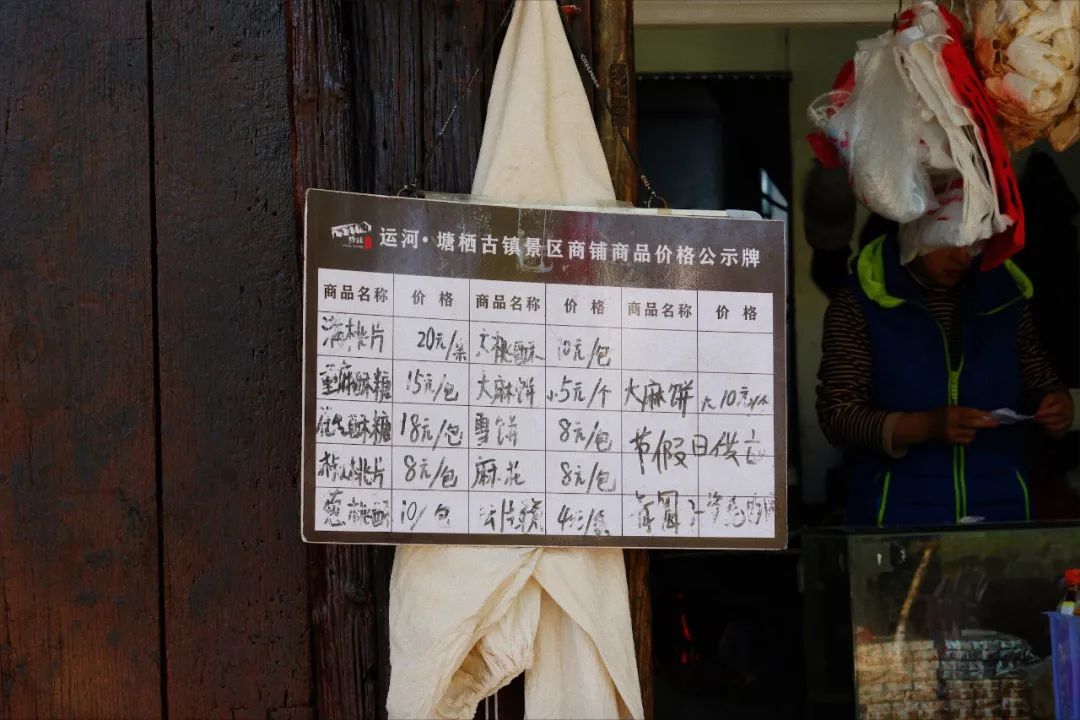 运河·塘栖古镇景区商铺商品价格公示牌
商品名称 价格 商品名称 价格 商品名称 价格
桃片 20元/ 桃酥 10元/包
麻酥糖 15元/包 大麻饼 小5元/个 大麻饼 大10元/个
酥糖 18元/包 雪饼 8元/包 节假日供应
桃片 8元/包 麻花 8元/包
葱桃酥 10/包 4元/